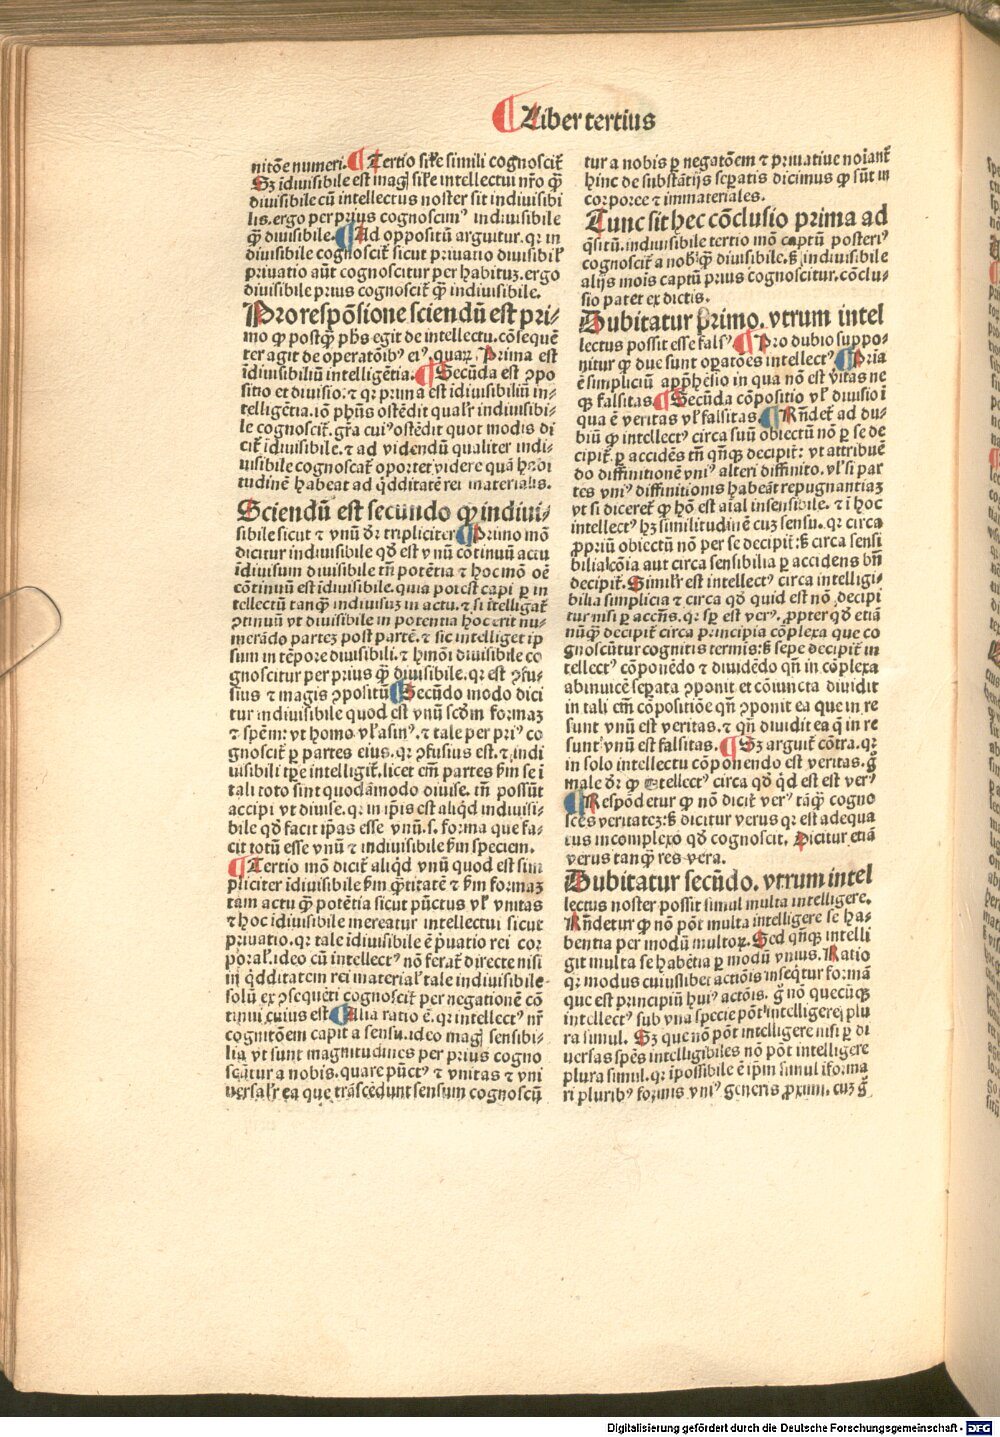 ¶ Liber tertius
nitōe numeri. ¶ Tertio sil̄e simili cognoscit̄
Sʒ īdiuisibile est magꝭ sil̄e intellectui nr̄o q̄ꝫ
diuisibile cū intellectus noster sit indiuisibi
lis. ergo per prius cognoscimꝰ indiuisibile
q̄ꝫ diuisibile. ¶ Ad oppositū arguitur. qꝛ in
diuisibile cognoscit̄ sicut priuatio diuisibil̄
priuatio aūt cognoscitur per habituꝫ. ergo
diuisibile prius cognoscit̄ q̄ꝫ indiuisibile.
Pro respōsione sciendū est pri-
mo ꝙ postq̄ꝫ ph̄s egit de intellectu. cōsequē
ter agit de operatōibꝰ eiꝰ. quaꝝ. Prima est
īdiuisibiliū intelligētia. ¶ Secūda est ꝯpo
sitio et diuisio: ⁊ qꝛ prima est īdiuisibiliū in-
telligētia. iō ph̄us ostēdit qualr̄ indiuisibi-
le cognoscit̄. gr̄a cuiꝰ ostēdit quot modis di
cit̄ īdiuisibile. ⁊ ad videndū qualiter indi-
uisibile cognoscat̄ oportet videre quā habi
tudinē habeat ad q̇dditatē rei materialis.
Sciendū est secundo ꝙ indiui-
sibile sicut ⁊ vnū dr̄ tripliciter ¶ Primo mō
dicitur indiuisibile qd̄ est vnū cōtinuū actu
īdiuisum diuisibile tn̄ potētia ⁊ hoc mō oē
cōtinuū est īdiuisibile. quia potest capi ꝑ in
tellectū tanq̄ꝫ indiuisuꝫ in actu. ⁊ si ītelligat̄
ꝯtinuū vt diuisibile in potentia hoc erit nu-
merādo partez post partē. ⁊ sic intelliget ip
sum in tēpore diuisibili. ⁊ hmōi diuisibile co
gnoscitur per prius q̄ꝫ diuisibile. qꝛ est ꝯfu-
sius ⁊ magis ꝯpositū ¶ Secūdo modo dici
tur indiuisibile quod est vnū scdm̄ formaꝫ
⁊ spēm: vt homo vl̄ asinꝰ. ⁊ tale per priꝰ co
gnoscit̄ ꝑ partes eius. qꝛ ꝯfusius est. ⁊ indi
uisibili tꝑe intelligit̄. licet cm̄ partes s̄m se ī
tali toto sint quodāmodo diuise. tn̄ possūt
accipi vt diuise. qꝛ in ip̄is est aliqd̄ indiuisi-
bile qd̄ facit ip̄as esse vnū. s. forma que fa-
cit totū esse vnū ⁊ indiuisibile s̄m speciem.
¶ Tertio mō dicit̄ aliqd̄ vnū quod est sim
pliciter īdiuisibile s̄m q̄ꝫtitatē ⁊ s̄m formaꝫ
tam actu q̄ꝫ potētia sicut pūctus vl̄ vnitas
⁊ hoc īdiuisibile mereatur intellectui sicut
priuatio. qꝛ tale īdiuisibile ē p̄uatio rei cor
poral̄. ideo cū intellectꝰ nō ferat̄ directe nisi
in q̇dditatem rei material̄ tale indiuisibile-
solū ex ꝯsequēti cognoscit̄ per negationē cō
tinui cuius est ¶ Alia ratio ē. qꝛ intellectꝰ nr̄
cognitōem capit a sensu. ideo magꝭ sensibi-
lia vt sunt magnitudines per prius cogno
scūtur a nobis. quare pūctꝰ ⁊ vnitas ⁊ vni
uersalr̄ ea que trāscēdunt sensum cognoscū
tur a nobis ꝑ negatōem ⁊ priuatiue noīant̄
hinc de substātijs sepatis dicimus ꝙ sūt in
corporee ⁊ immateriales.
Tunc sit hec cōclusio prima ad
q̄sitū. indiuisibile tertio mō captū posteriꝰ
cognoscit̄ a nob̄ q̄ꝫ diuisibile. sꝫ indiuisibile
alijs mois captū prius cognoscitur. cōclu-
sio patet ex dictis.
Dubitatur primo. vtrum intel
lectus possit esse falsꝰ ¶ Pro dubio suppo-
nitur ꝙ due sunt oꝑatōes intellectꝰ ¶ Pria
ē simpliciū appr̄hēsio in qua nō est v̄itas ne
qꝫ falsitas. ¶ Secūda cōpositio vl̄ diuisio ī
qua ē veritas vl̄ falsitas. ¶ Rn̄det̄ ad du-
biū ꝙ intellectꝰ circa suū obiectū nō ꝑ se de
cipit̄. ꝑ accidēs tn̄ qn̄qꝫ decipit̄: vt attribuē
do diffinitionē vniꝰ alteri diffinito. vl̄ si par
tes vniꝰ diffinitionis habeāt repugnantiaꝫ
vt si diceret̄ ꝙ hō est aīal insensibile. ⁊ ī hoc
intellectꝰ hꝫ similitudinē cuꝫ sensu. qꝛ circa
ꝓpriū obiectū nō per se decipit̄: sꝫ circa sensi
bilia cōia aut circa sensibilia ꝑ accidens bn̄
decipit̄. Similr̄ est intellectꝰ circa intelligi-
bilia simplicia ⁊ circa qd̄ quid est nō decipi
tur nisi ꝑ accn̄s. qꝛ sꝑ est verꝰ. ꝓpter qd̄ etiā
nūq̄ꝫ decipit̄ circa principia cōplexa que co
gnoscūtur cognitis termīs: sꝫ sepe decipit̄ in
tellectꝰ cōponēdo ⁊ diuidēdo qn̄ in cōplexa
abinuicē seꝑata ꝯponit et cōiuncta diuidit
in tali cm̄ cōpositiōe qn̄ ꝯponit ea que in re
sunt vnū est veritas. ⁊ qn̄ diuidit ea q̄ in re
sunt vnū est falsitas. ¶ Sꝫ arguit̄ cōtra. qꝛ
in solo intellectu cōponendo est veritas. g̊
male dr̄ ꝙ intellectꝰ circa qd̄ q̇d est est verꝰ
¶ Respōdetur ꝙ nō dicit̄ verꝰ tāq̄ꝫ cogno
sces veritatez: sꝫ dicitur verus qꝛ est adequa
tus incomplexo qd̄ cognoscit. Dicitur etiā
verus tanq̄ꝫ res vera.
Dubitatur secūdo. vtrum intel
lectus noster possit simul multa intelligere.
Rn̄detur ꝙ nō pōt multa intelligere se ha-
bentia per modū multoꝝ. Sed qn̄qꝫ intelli
git multa se habētia ꝑ modū vnius. Ratio
qꝛ modus cuiuslibet actiōis inseq̄tur formā
que est principiū huiꝰ actōis. g̊ nō quecūqꝫ
intellectꝰ sub vna specie pōt intelligere plu
ra simul. Sꝫ que nō pōt intelligere nisi ꝑ di
uersas spēs intelligibiles nō pōt intelligere
plura simul. qꝛ īpossibile ē ip̄m simul īforma
ri pluribꝰ formis vniꝰ generis ꝓximi. cuꝫ g̊
Digitalisierung gefördert durch die Deutsche Forschungsgemeinschaft - DFG